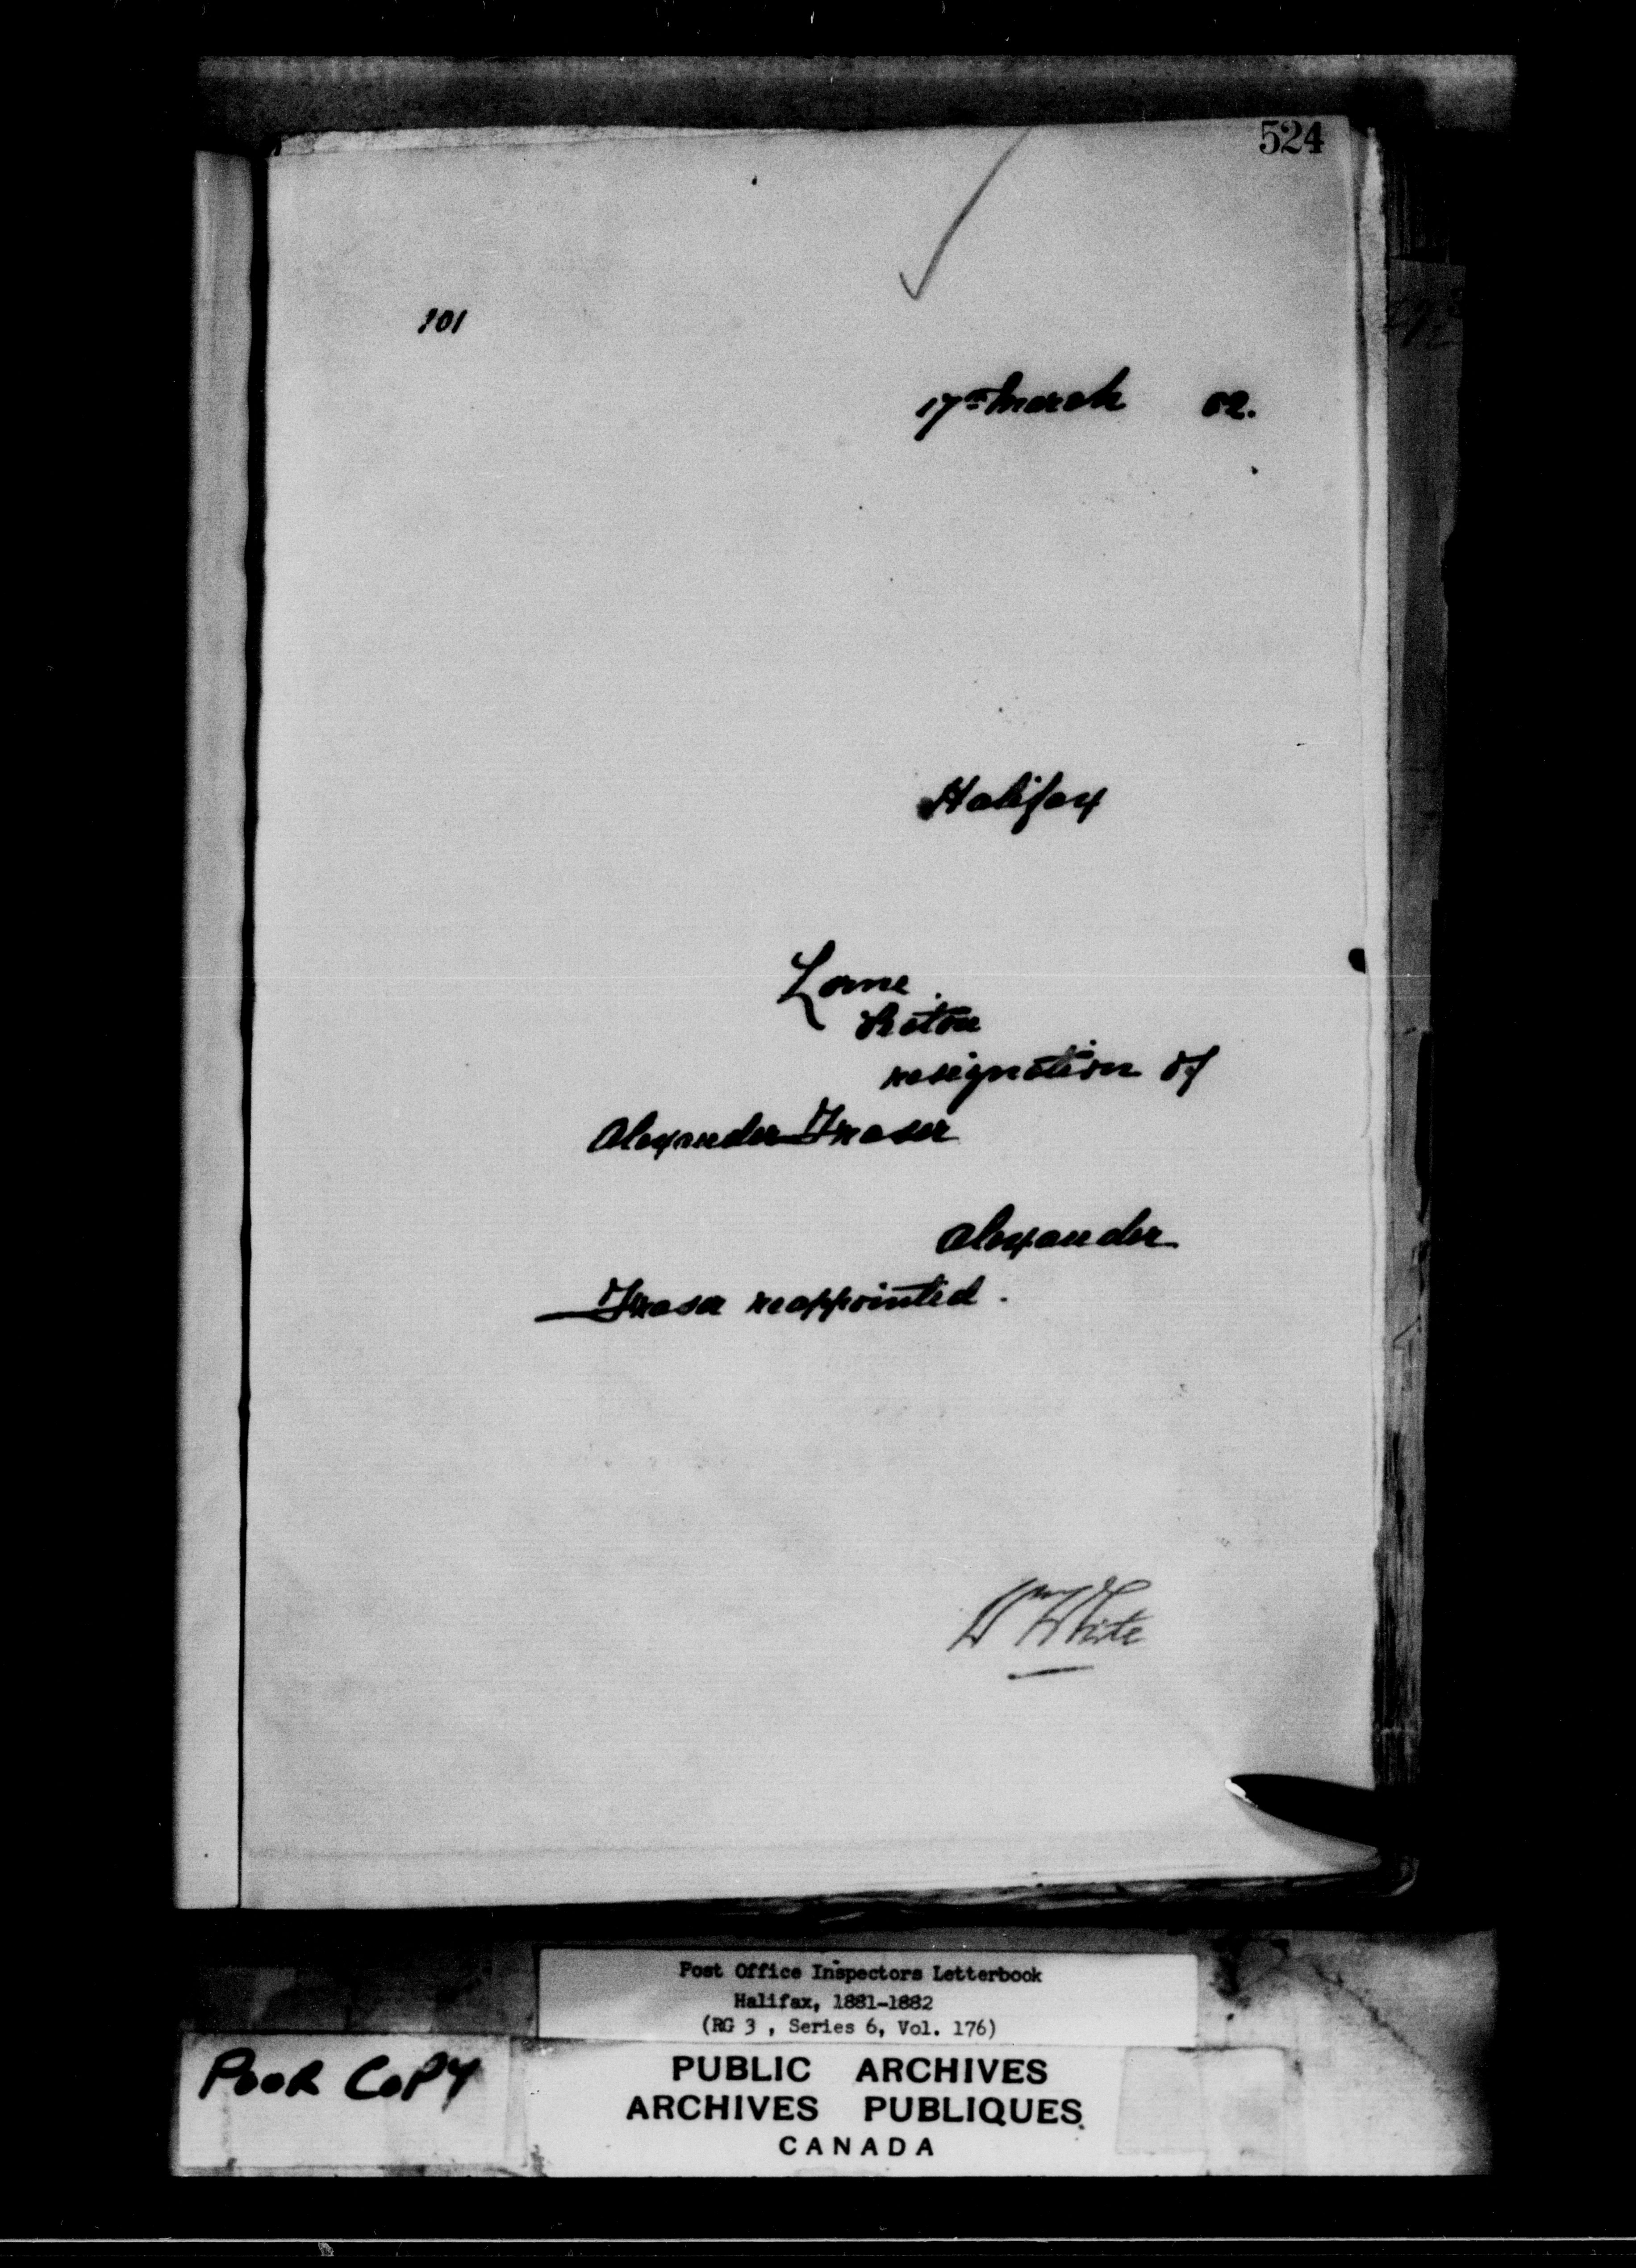 524
101
17th March 82.
Halifax
Lorne
Pictou
resignation of
Alexander Fraser
Alexander
Fraser reappointed.
Wm White
Post Office Inspectors Letterbook
Halifax, 1881-1882
(RG 3 , Series 6, Vol. 176)
POOR COPY
PUBLIC ARCHIVES
ARCHIVES PUBLIQUES
CANADA